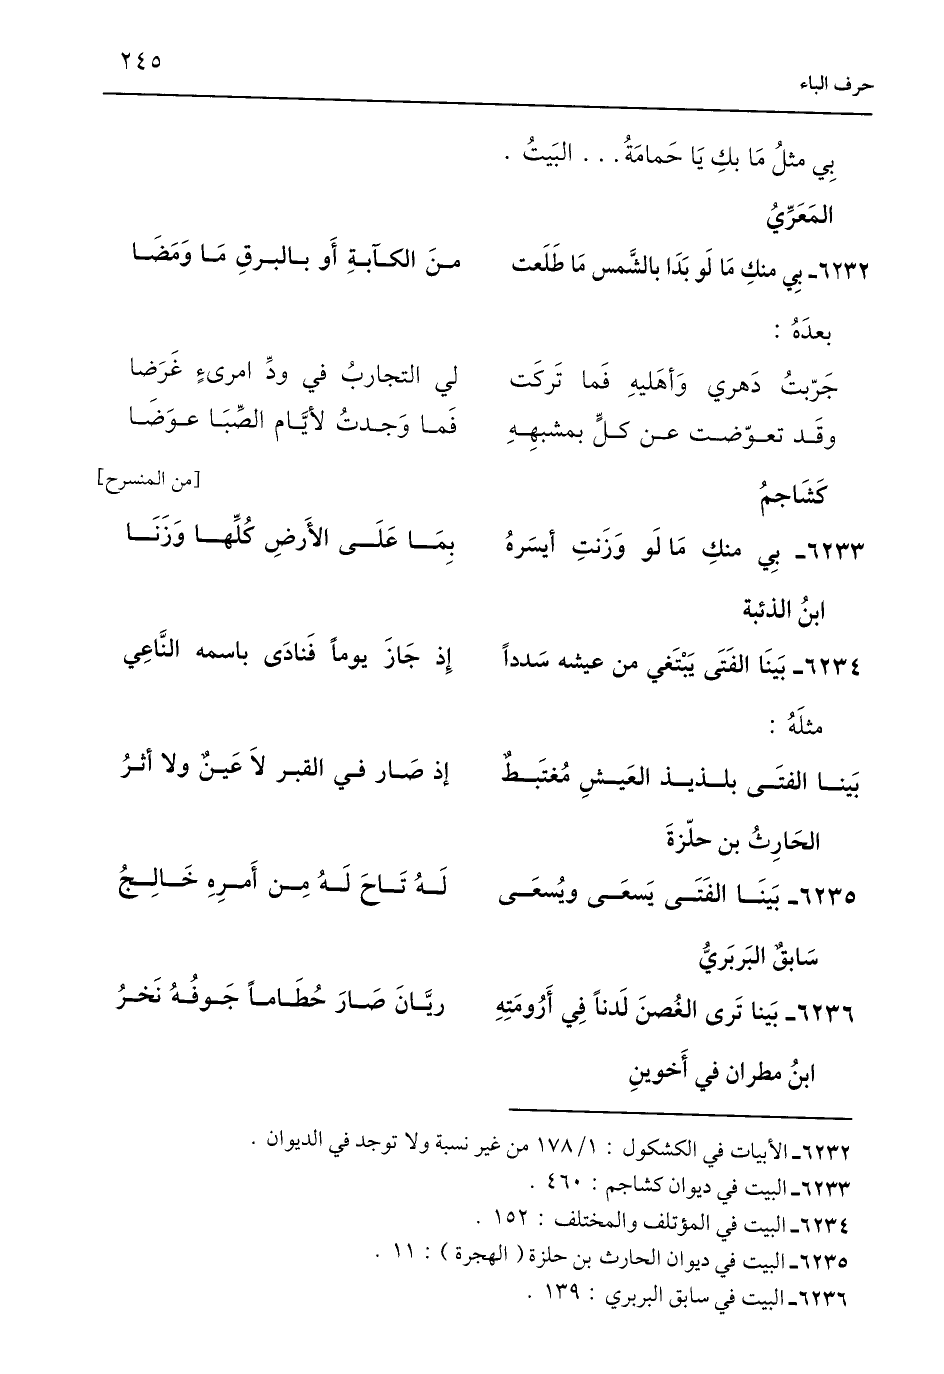 ٢٤٥
حرف الباء
بِي مثلُ مَا بكِ يَا حَمامَةُ . . . البَيتُ .
المَعَرِّيُ
٦٢٣٢ـ بِي منكِ مَا لَو بَدَا بالشَّمس مَا طَلَعت مـنَ الكـآبـةِ أَو بـالبـرقِ مَـا وَمَضَـا
بعدَهُ :
جَرّبتُ دَهري وَأهَليهِ فَما تَركَت لي التجاربُ في ودِّ امرىءٍ غَرَضا
وقَـد تعـوّضـت عـن كـلٍّ بمشبهِـهِ فَمـا وَجـدتُ لأيَّـام الصِّبَـا عـوَضَـا
كَشَاجمُ [من المنسرح]
٦٢٣٣ـ بِي منكِ مَا لَو وَزَنتِ أيسَرهُ بِمَـا عَلَـى الأَرضِ كُلِّهـا وَزَنَـا
ابنُ الذئبة
٦٢٣٤ـ بَينَا الفَتَى يَبْتَغي من عيشه سَدداً إِذ جَازَ يوماً فَنادَى باسمه النَّاعِي
مثلَهُ :
بَينـا الفتَـى بلـذيـذ العَيـشِ مُغتَبـطٌ إذ صَـار فـي القبـر لاَ عَينٌ ولا أثرُ
الحَارِثُ بن حلّزةَ
٦٢٣٥ـ بَينَـا الفَتَـى يَسعَـى ويُسعَـى لَـهُ تَـاحَ لَـهُ مِـن أَمـرِهِ خَـالِـجُ
سَابقٌ البَربَريُّ
٦٢٣٦ـ بَينا تَرى الغُصنَ لَدناً فِي أَرُومَتِهِ ريَّـانَ صَـارَ حُطَـامـاً جَـوفُـهُ نَخرُ
ابنُ مطران في أَخوينِ
٦٢٣٢ـ الأبيات في الكشكول : ١/ ١٧٨ من غير نسبة ولا توجد في الديوان .
٦٢٣٣ـ البيت في ديوان كشاجم : ٤٦٠ .
٦٢٣٤ـ البيت في المؤتلف والمختلف : ١٥٢ .
٦٢٣٥ـ البيت في ديوان الحارث بن حلزة ( الهجرة ) : ١١ .
٦٢٣٦ـ البيت في سابق البربري : ١٣٩ .